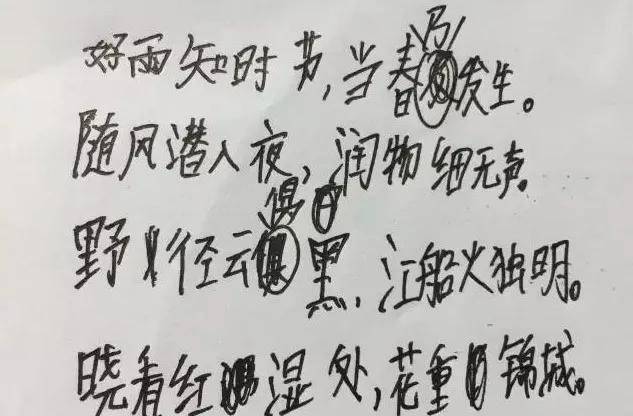 好雨知时节,当春乃发生。
随风潜入夜,润物细无声。
野径云俱黑,江船火独明。
晓看红湿处,花重锦城。